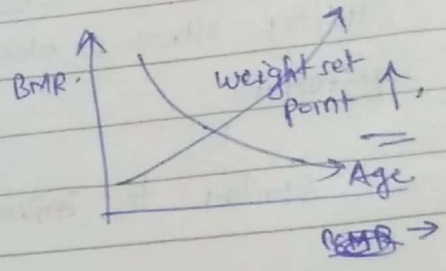 BMR.
weight set
point ↑.
Age
BMR →